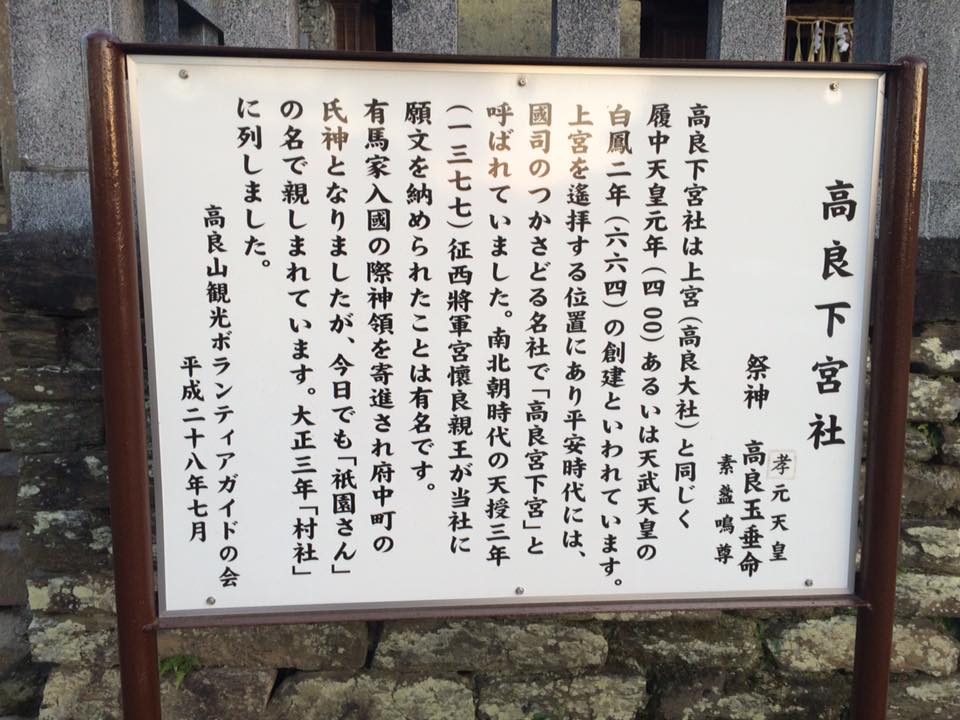 高良下宮社
祭神
孝元天皇
高良玉垂命
素盞嗚尊
高良下宮社は上宮(高良大社)と同じく
履中天皇元年(四00)あるいは天武天皇の
白鳳二年(六六四)の創建といわれています。
上宮を遙拝する位置にあり平安時代には、
國司のつかさどる名社で「高良宮下宮」と
呼ばれていました。南北朝時代の天授三年
(一三七七)征西將軍宮懷良親王が当社に
願文を納められたことは有名です。
有馬家入國の際神領を寄進され府中町の
氏神となりましたが、今日でも「祇園さん」
の名で親しまれています。大正三年「村社」
に列しました。
高良山観光ボランティアガイドの会
平成二十八年七月